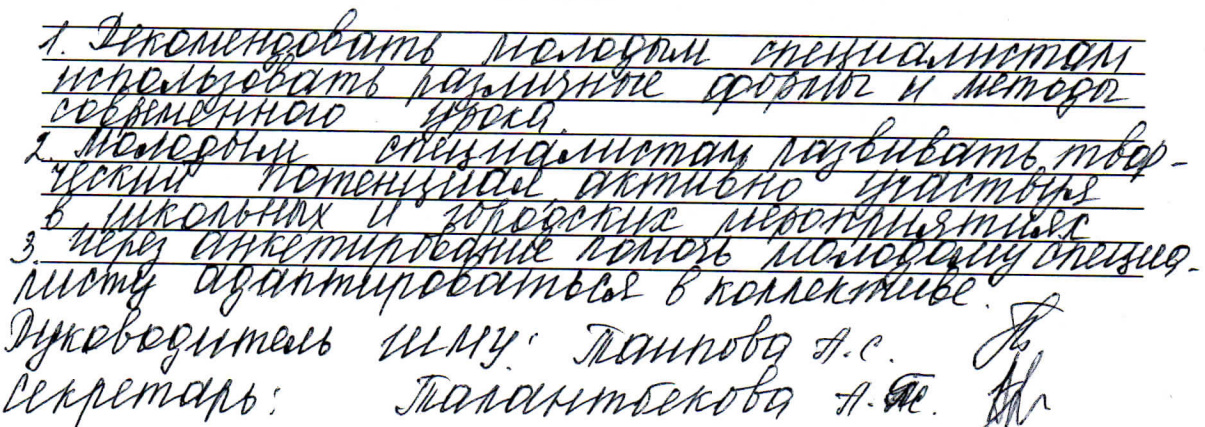 1. Рекомендовать молодым специалистам
использовать различные формы и методы
современного урока.
2. Молодым специалистам развивать твор-
ческий потенциал активно участвуя
в школьных и городских мероприятиях
3. Через анкетирование помочь молодому специа-
листу адаптироваться в коллективе.
Руководитель ШМУ: Таипова А.С.
Секретарь: Талантбекова А.